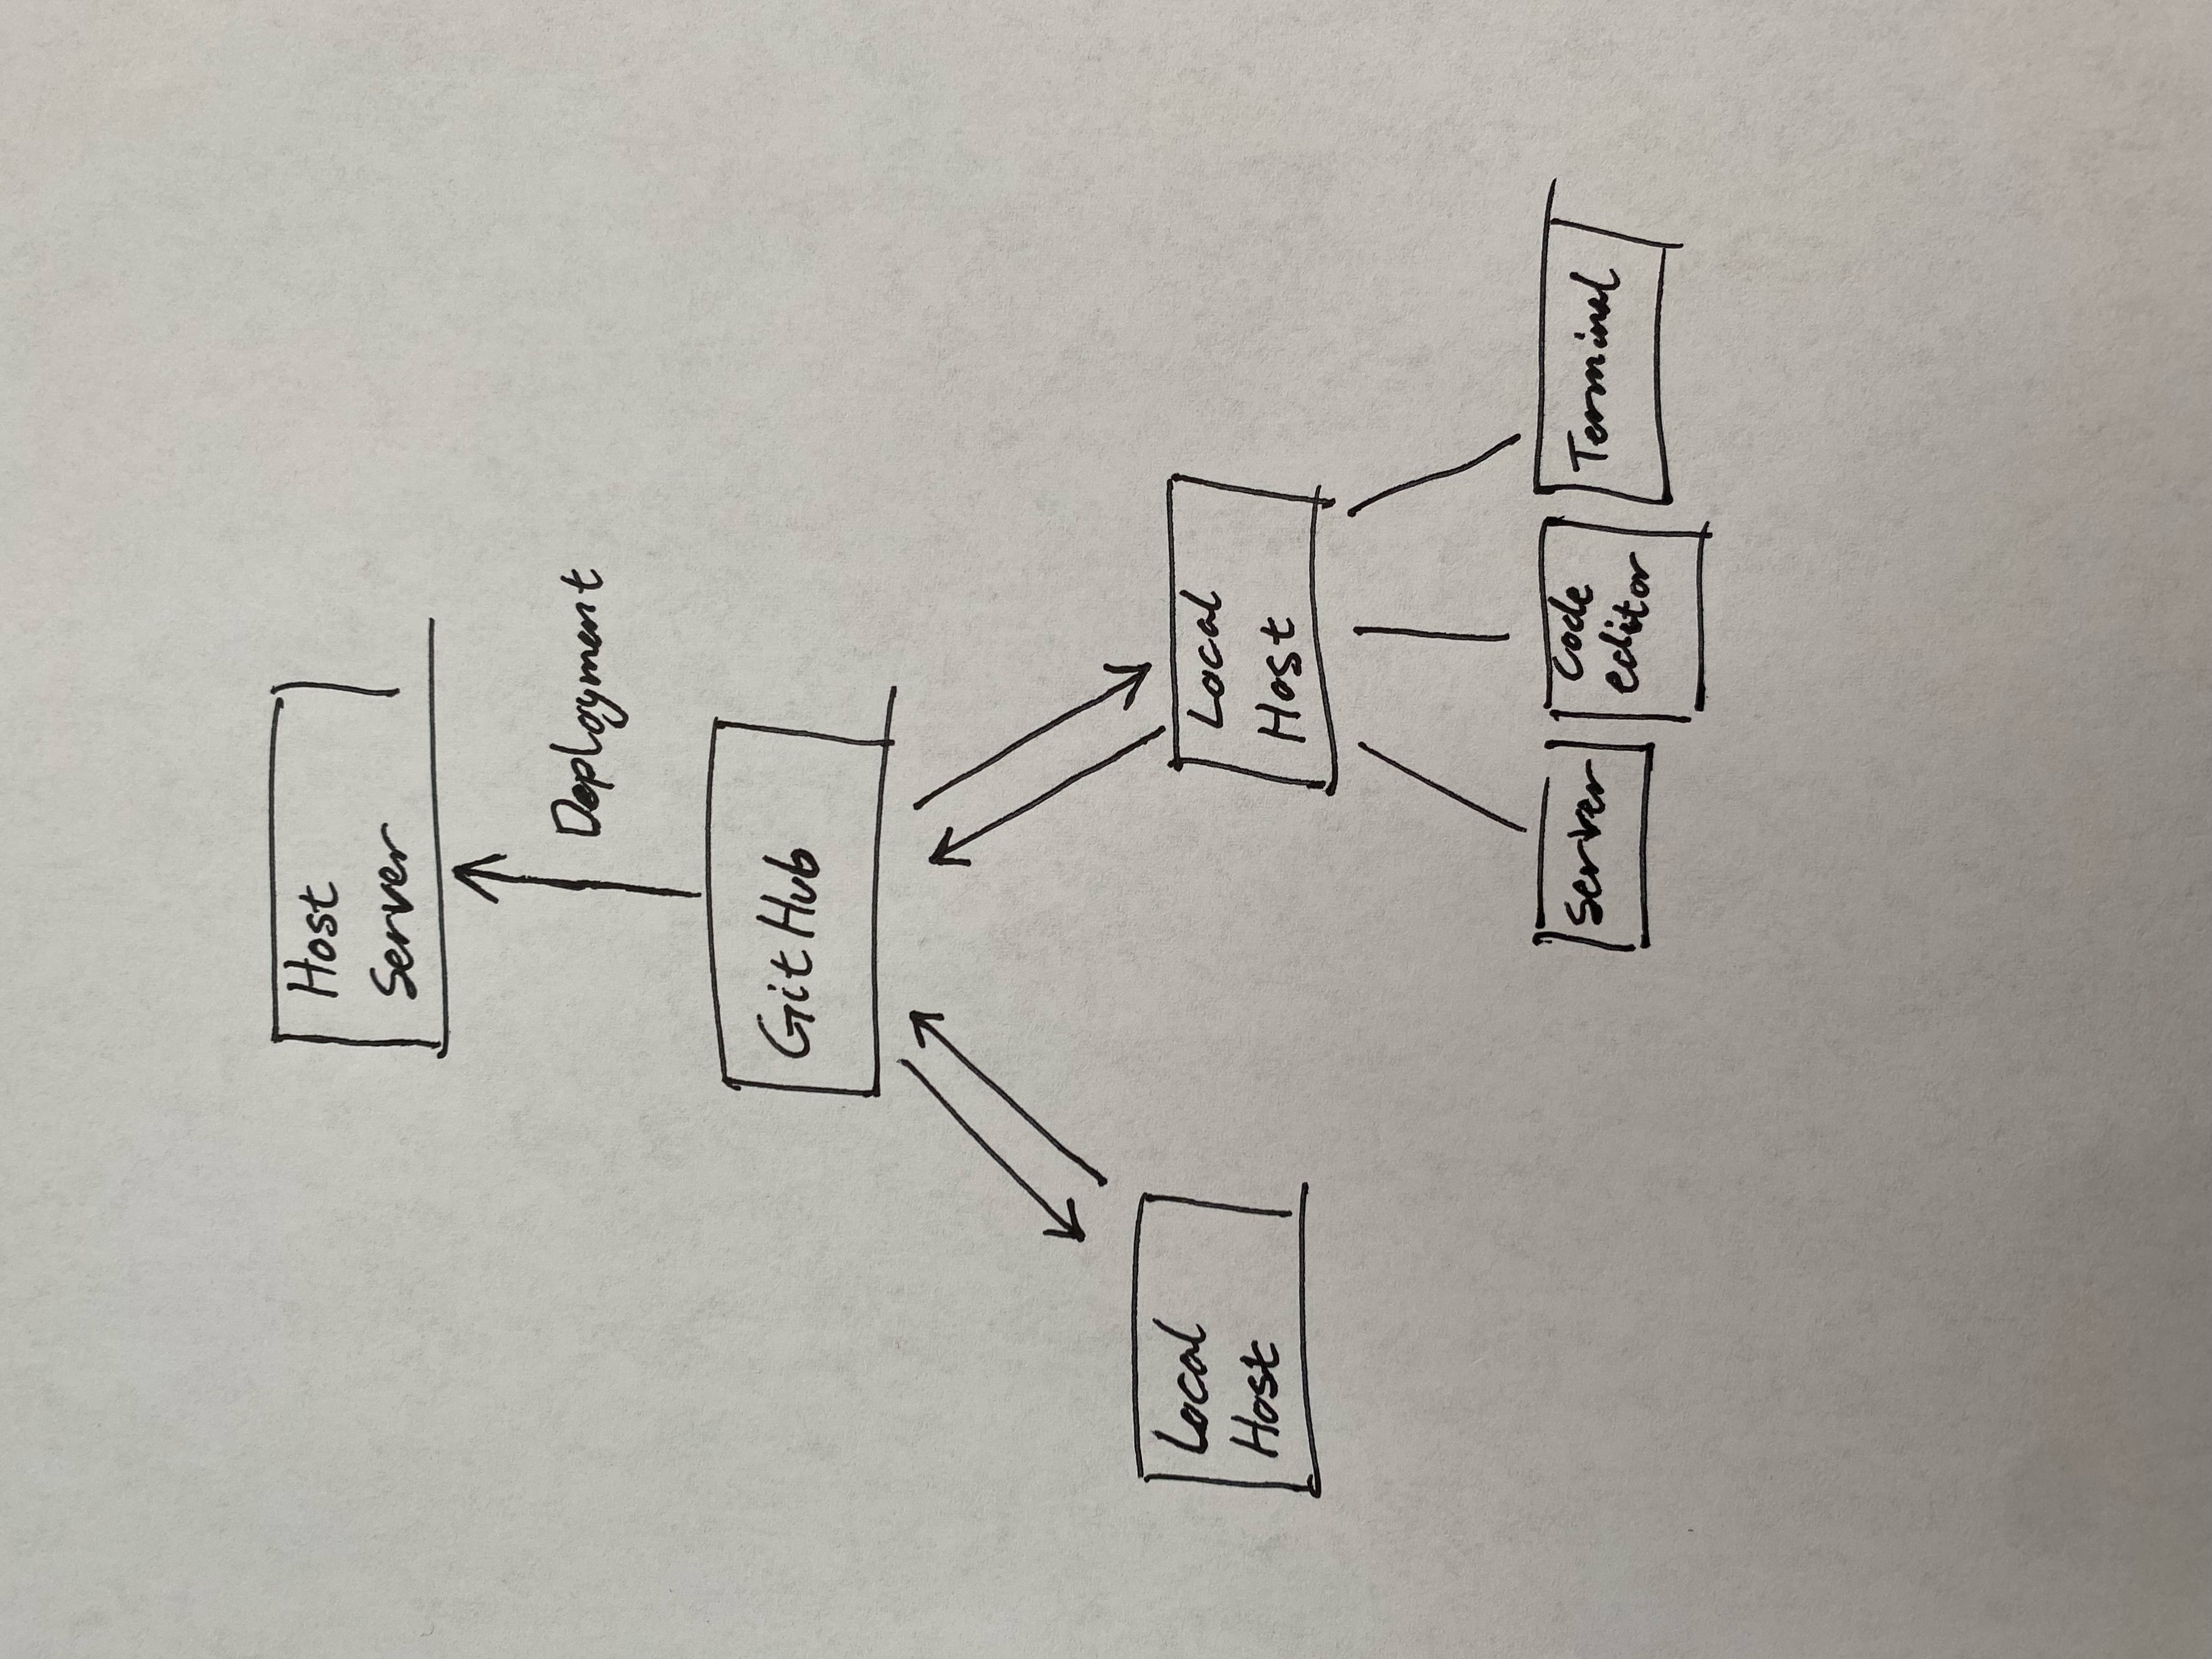 Host
Server
Deployment
GitHub
Local
Host
Local
Host
Server
Code
editor
Terminal